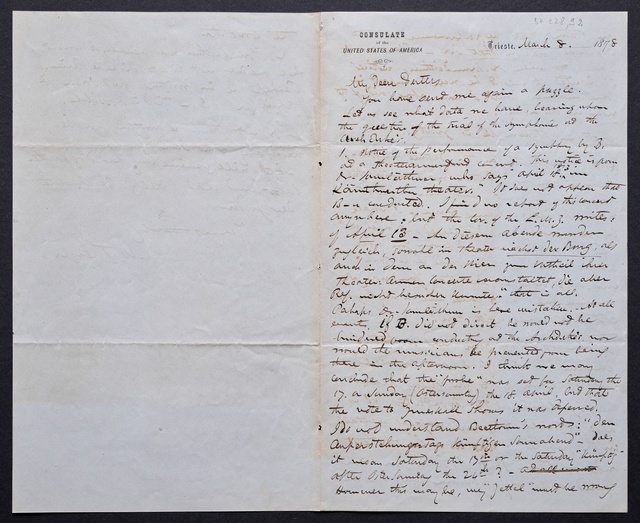 CONSULATE
of the
UNITED STATES OF AMERICA
Trieste, March 8. 1878
My dear Deiters
You have sent me again a puzzle.
Let us see what data we have, bearing upon
the question of the trial of the symphonie at the
Arch Duke's.
1. Notice of the performance of a symphony by B.
at a theaterarmenfond concert. This notice is from
who says "April 18th im
Kärntnerthor theater." It does not appear that
B—n conducted. I find no report of this concert
anywhere; but the Cor. of the L. M. Z. writes;
of April 13 - An diesem Abende wurden
zugleich, sowohl im theater nächst der Burg, als
auch in dem an der Wien zum Vortheil ihrer
Theater-Armen Concerte veranstaltet, die aber
Ref. nicht besuchen konnte." that is all.
Perhaps is here mistaken. At all
events, if B. did not direct he would not be
hindered from conducting at the Archduke's nor
would the musicians be prevented from being
there in the afternoon. I think we may
conclude that the "probe" was set for Saturday the
17. a Sunday (Ostersonntag) the 18. April, and that
the note to Zmeskall shows it was deferred.
I do not understand Beethoven's words: "Den
Auferstehungstag künftigen Sonnabend" Does
it mean Saturday the 17th or the Saturday "künftig"
after Ostersonntag the 24th? -
However this may be, my "Zettel" must be wrong